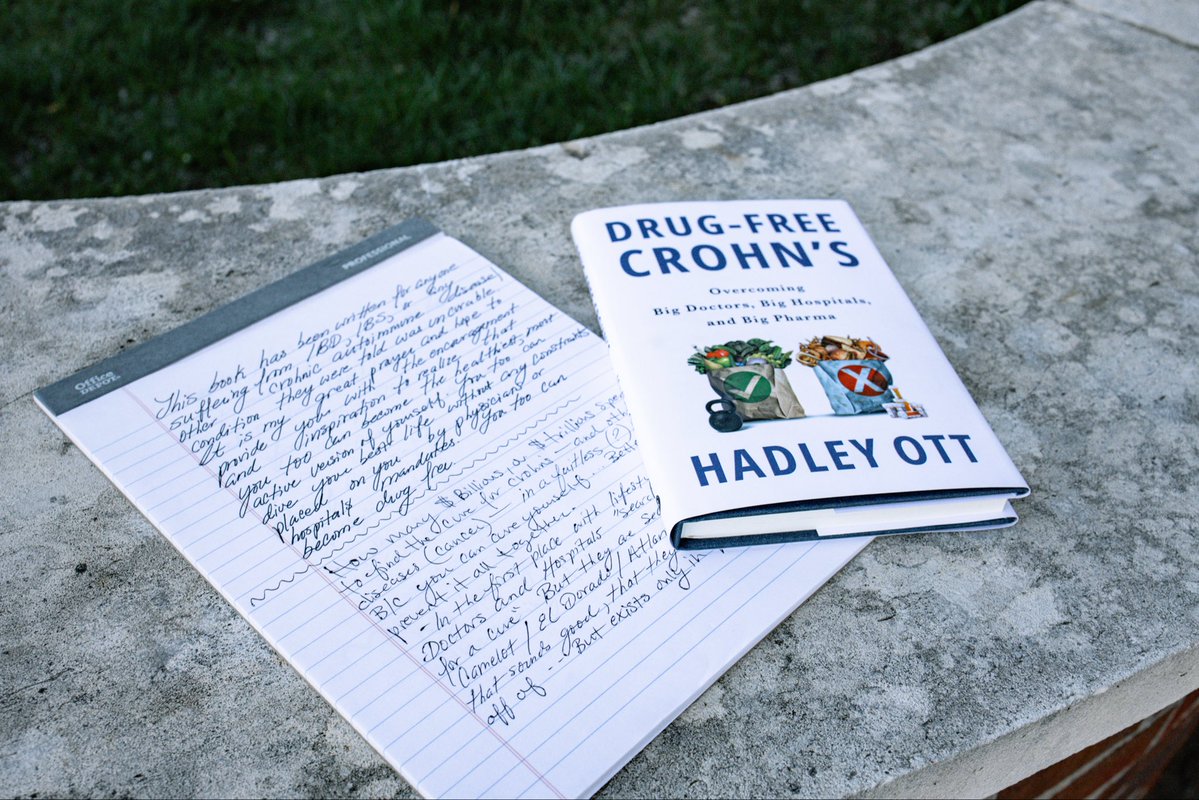 Office
DEPOT
PROFESSIONAL
This book has been written for anyone
suffering from IBD, IBS, or any
other (Crohnic autoimmune disease/
condition they were told was incurable
It is my great prayer and hope to
provide you with the encouragement
and inspiration to realize that
you too can become the healthest, most
active version of yourself. You too, can
live your best life without any constraints
placed on you by physicians or
hospitals mandates. You too can
become drug free
How many $ Billions or $ trillions
to find the "Cure for Crohns and
diseases (cancer) in a fruitless
B/C you can cure yourself... Bett
prevent it all together...
- In the first place with lifesty
Doctors and Hospitals "Search
for a cure" But they are se
Camelot / El Dorado / Atlan
that sounds good, that they
off of ... But exists only in
2
DRUG-FREE
CROHN'S
Overcoming
Big Doctors, Big Hospitals,
and Big Pharma
HADLEY OTT